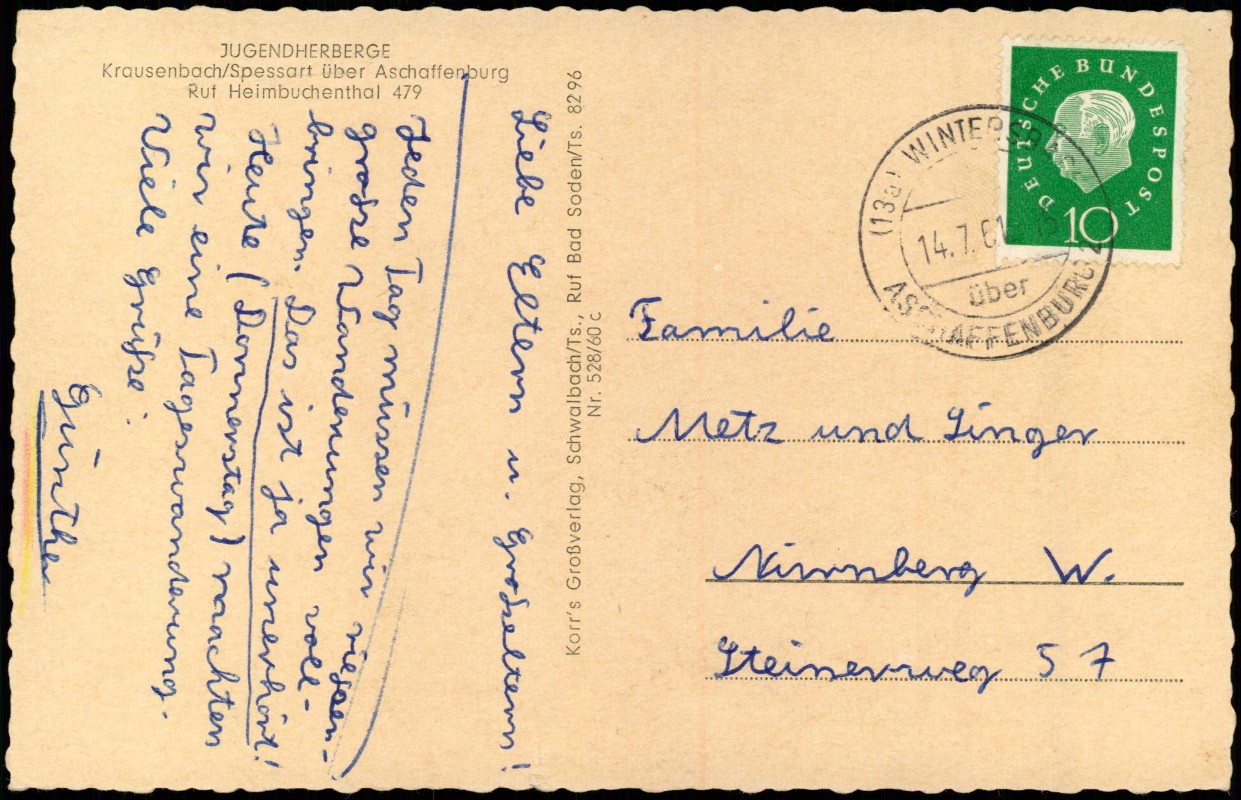 JUGENDHERBERGE
Krausenbach/Spessart über Aschaffenburg
Ruf Heimbuchenthal 479
Liebe Eltern u. Großeltern!
Jeden Tag müssen wir riesen-
große Wanderungen voll-
bringen. Das ist ja unerhört!
Heute (Donnerstag) machten
wir eine Tageswanderung.
Viele Grüße.
Günther
Korr's Großverlag, Schwalbach/Ts., Ruf Bad Soden/Ts. 8296
Nr. 528/60 c
DEUTSCHE BUNDESPOST
10
(13a) WINTERSBACH
14.7.61
über
ASCHAFFENBURG 2
Familie
Metz und Singer
Nürnberg W.
Steinerweg 57